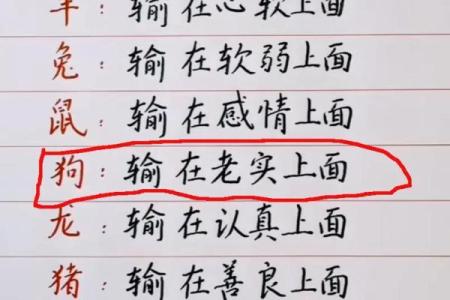 羊：输在心软上面
兔：输在软弱上面
鼠：输在感情上面
狗：输在老实上面
龙：输在认真上面
猪：输在善良上面